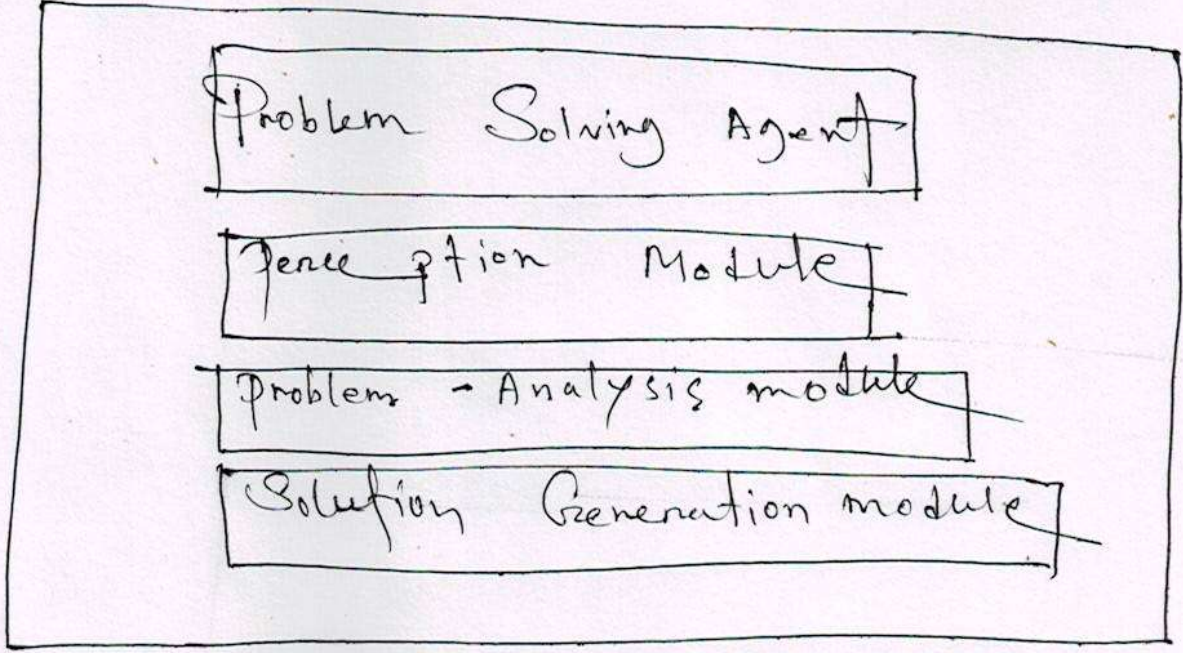 Problem Solving Agent
Perception Module
Problem - Analysis module
Solution Generation module